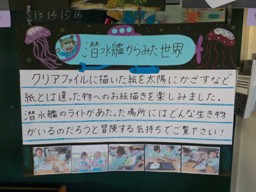 潜水艦からみた世界
クリアファイルに描いた絵を太陽にかざすなど
紙とは違った物へのお絵描きを楽しみました。
潜水艦のライトがあたった場所にはどんな生き物
がいるのだろうと冒険する気持ちでご覧下さい!